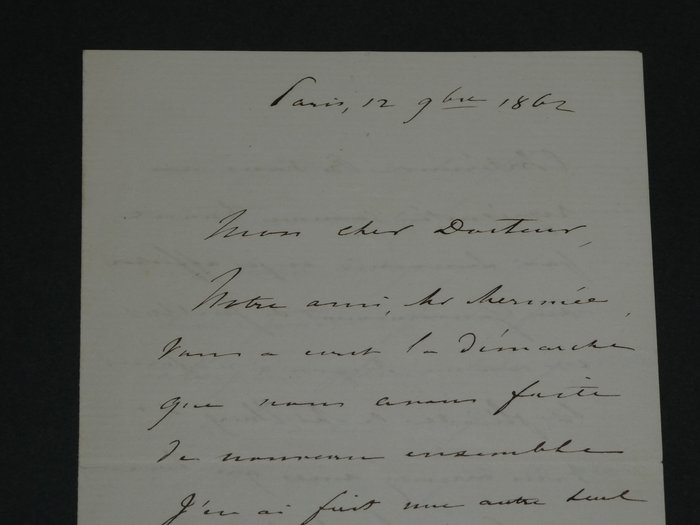 Paris, 12 9bre 1862
Mon cher Docteur,
Notre ami, Mr Mérimée,
vous a écrit la démarche
que nous avons faite
de nouveau ensemble
J'en ai fait une autre seul